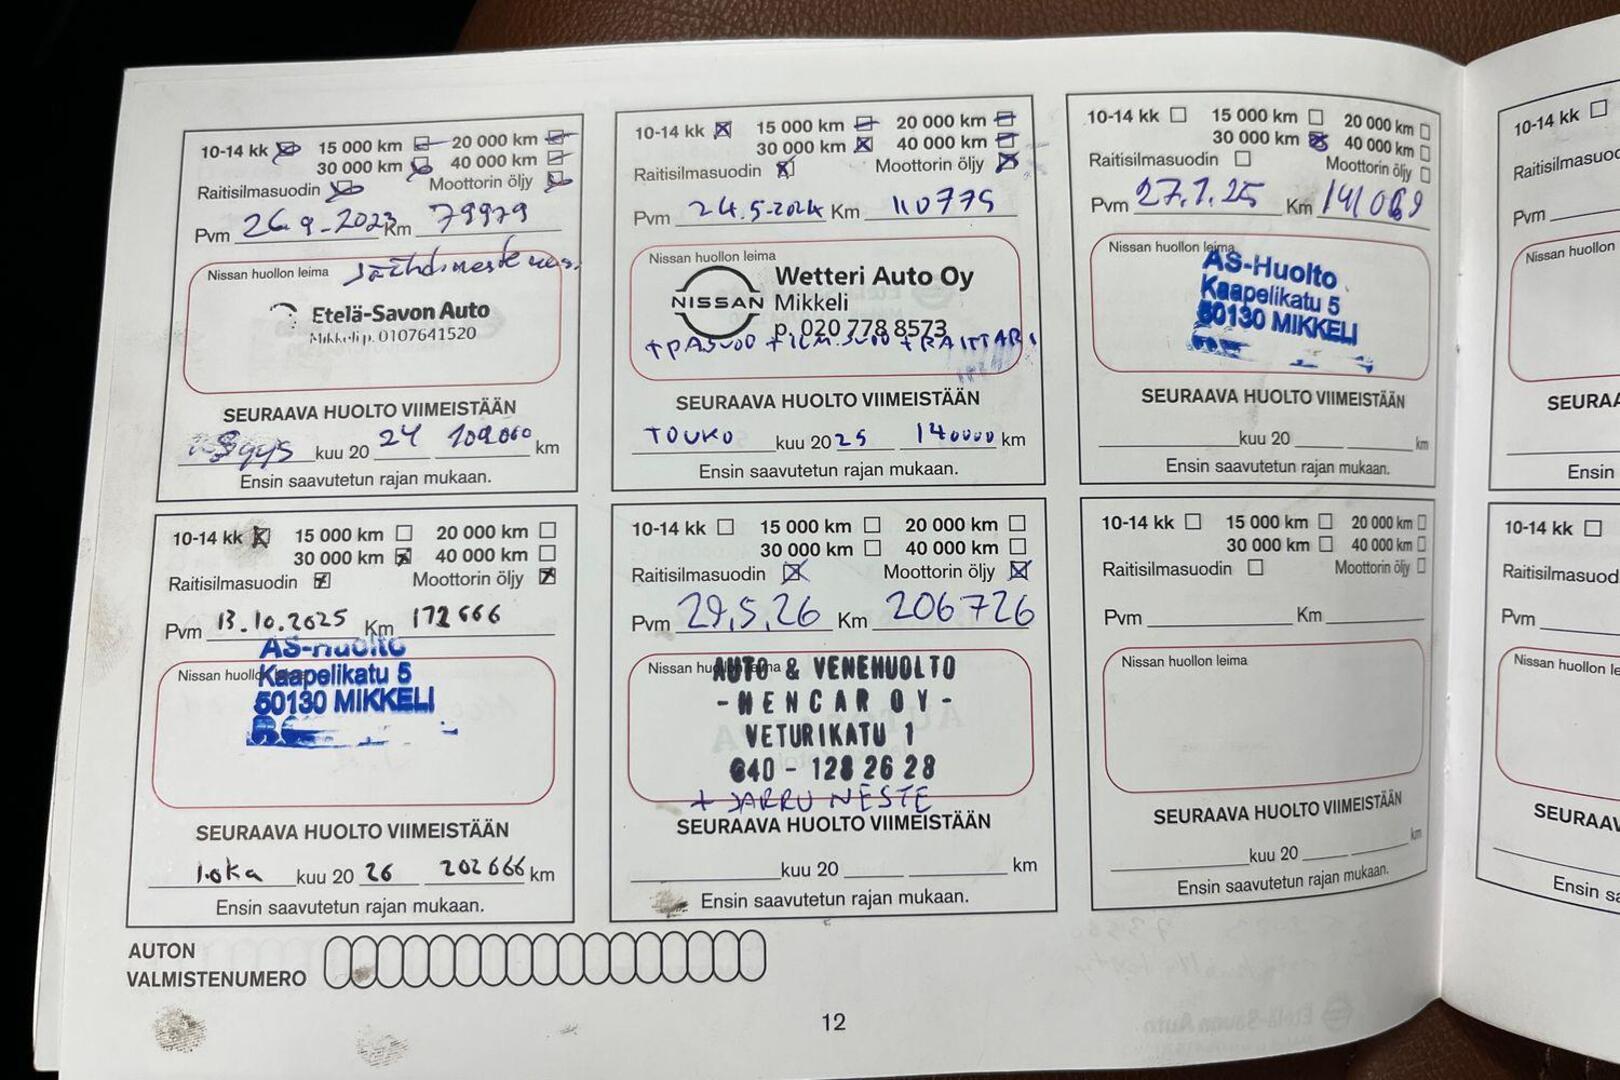 10-14 kk 15 000 km 20 000 km
30 000 km 40 000 km
Raitisilmasuodin Moottorin öljy
Pvm 26.9-2023 Km 79979
Nissan huollon leima
Etelä-Savon Auto
Mikkeli p. 0107641520
SEURAAVA HUOLTO VIIMEISTÄÄN
Syys kuu 20 24 109000 km
Ensin saavutetun rajan mukaan.
10-14 kk 15 000 km 20 000 km
30 000 km 40 000 km
Raitisilmasuodin Moottorin öljy
Pvm 24.5-2024 Km 110775
Nissan huollon leima
NISSAN
Wetteri Auto Oy
Mikkeli
p. 020 778 8573
+ PASUOD + ILM.SUOD + RAITTARI
SEURAAVA HUOLTO VIIMEISTÄÄN
TOUKO kuu 20 25 140000 km
Ensin saavutetun rajan mukaan.
10-14 kk 15 000 km 20 000 km
30 000 km 40 000 km
Raitisilmasuodin Moottorin öljy
Pvm 27.1.25 Km 141069
Nissan huollon leima
AS-Huolto
Kaapelikatu 5
50130 MIKKELI
SEURAAVA HUOLTO VIIMEISTÄÄN
kuu 20 km
Ensin saavutetun rajan mukaan.
10-14 kk
Raitisilmasuod
Pvm
Nissan huollon
SEURAA
Ensin
10-14 kk 15 000 km 20 000 km
30 000 km 40 000 km
Raitisilmasuodin Moottorin öljy
Pvm 13.10.2025 Km 172666
Nissan huollon
AS-Huolto
Kaapelikatu 5
50130 MIKKELI
SEURAAVA HUOLTO VIIMEISTÄÄN
loka kuu 20 26 202666 km
Ensin saavutetun rajan mukaan.
10-14 kk 15 000 km 20 000 km
30 000 km 40 000 km
Raitisilmasuodin Moottorin öljy
Pvm 29.5.26 Km 206726
Nissan huollon leima
AUTO & VENEHUOLTO
- MENCAR OY -
VETURIKATU 1
040 - 128 26 28
+ JARRU NESTE
SEURAAVA HUOLTO VIIMEISTÄÄN
kuu 20 km
Ensin saavutetun rajan mukaan.
10-14 kk 15 000 km 20 000 km
30 000 km 40 000 km
Raitisilmasuodin Moottorin öljy
Pvm Km
Nissan huollon leima
SEURAAVA HUOLTO VIIMEISTÄÄN
kuu 20 km
Ensin saavutetun rajan mukaan.
10-14 kk
Raitisilmasuod
Pvm
Nissan huollon le
SEURAAV
Ensin sa
AUTON
VALMISTENUMERO
12